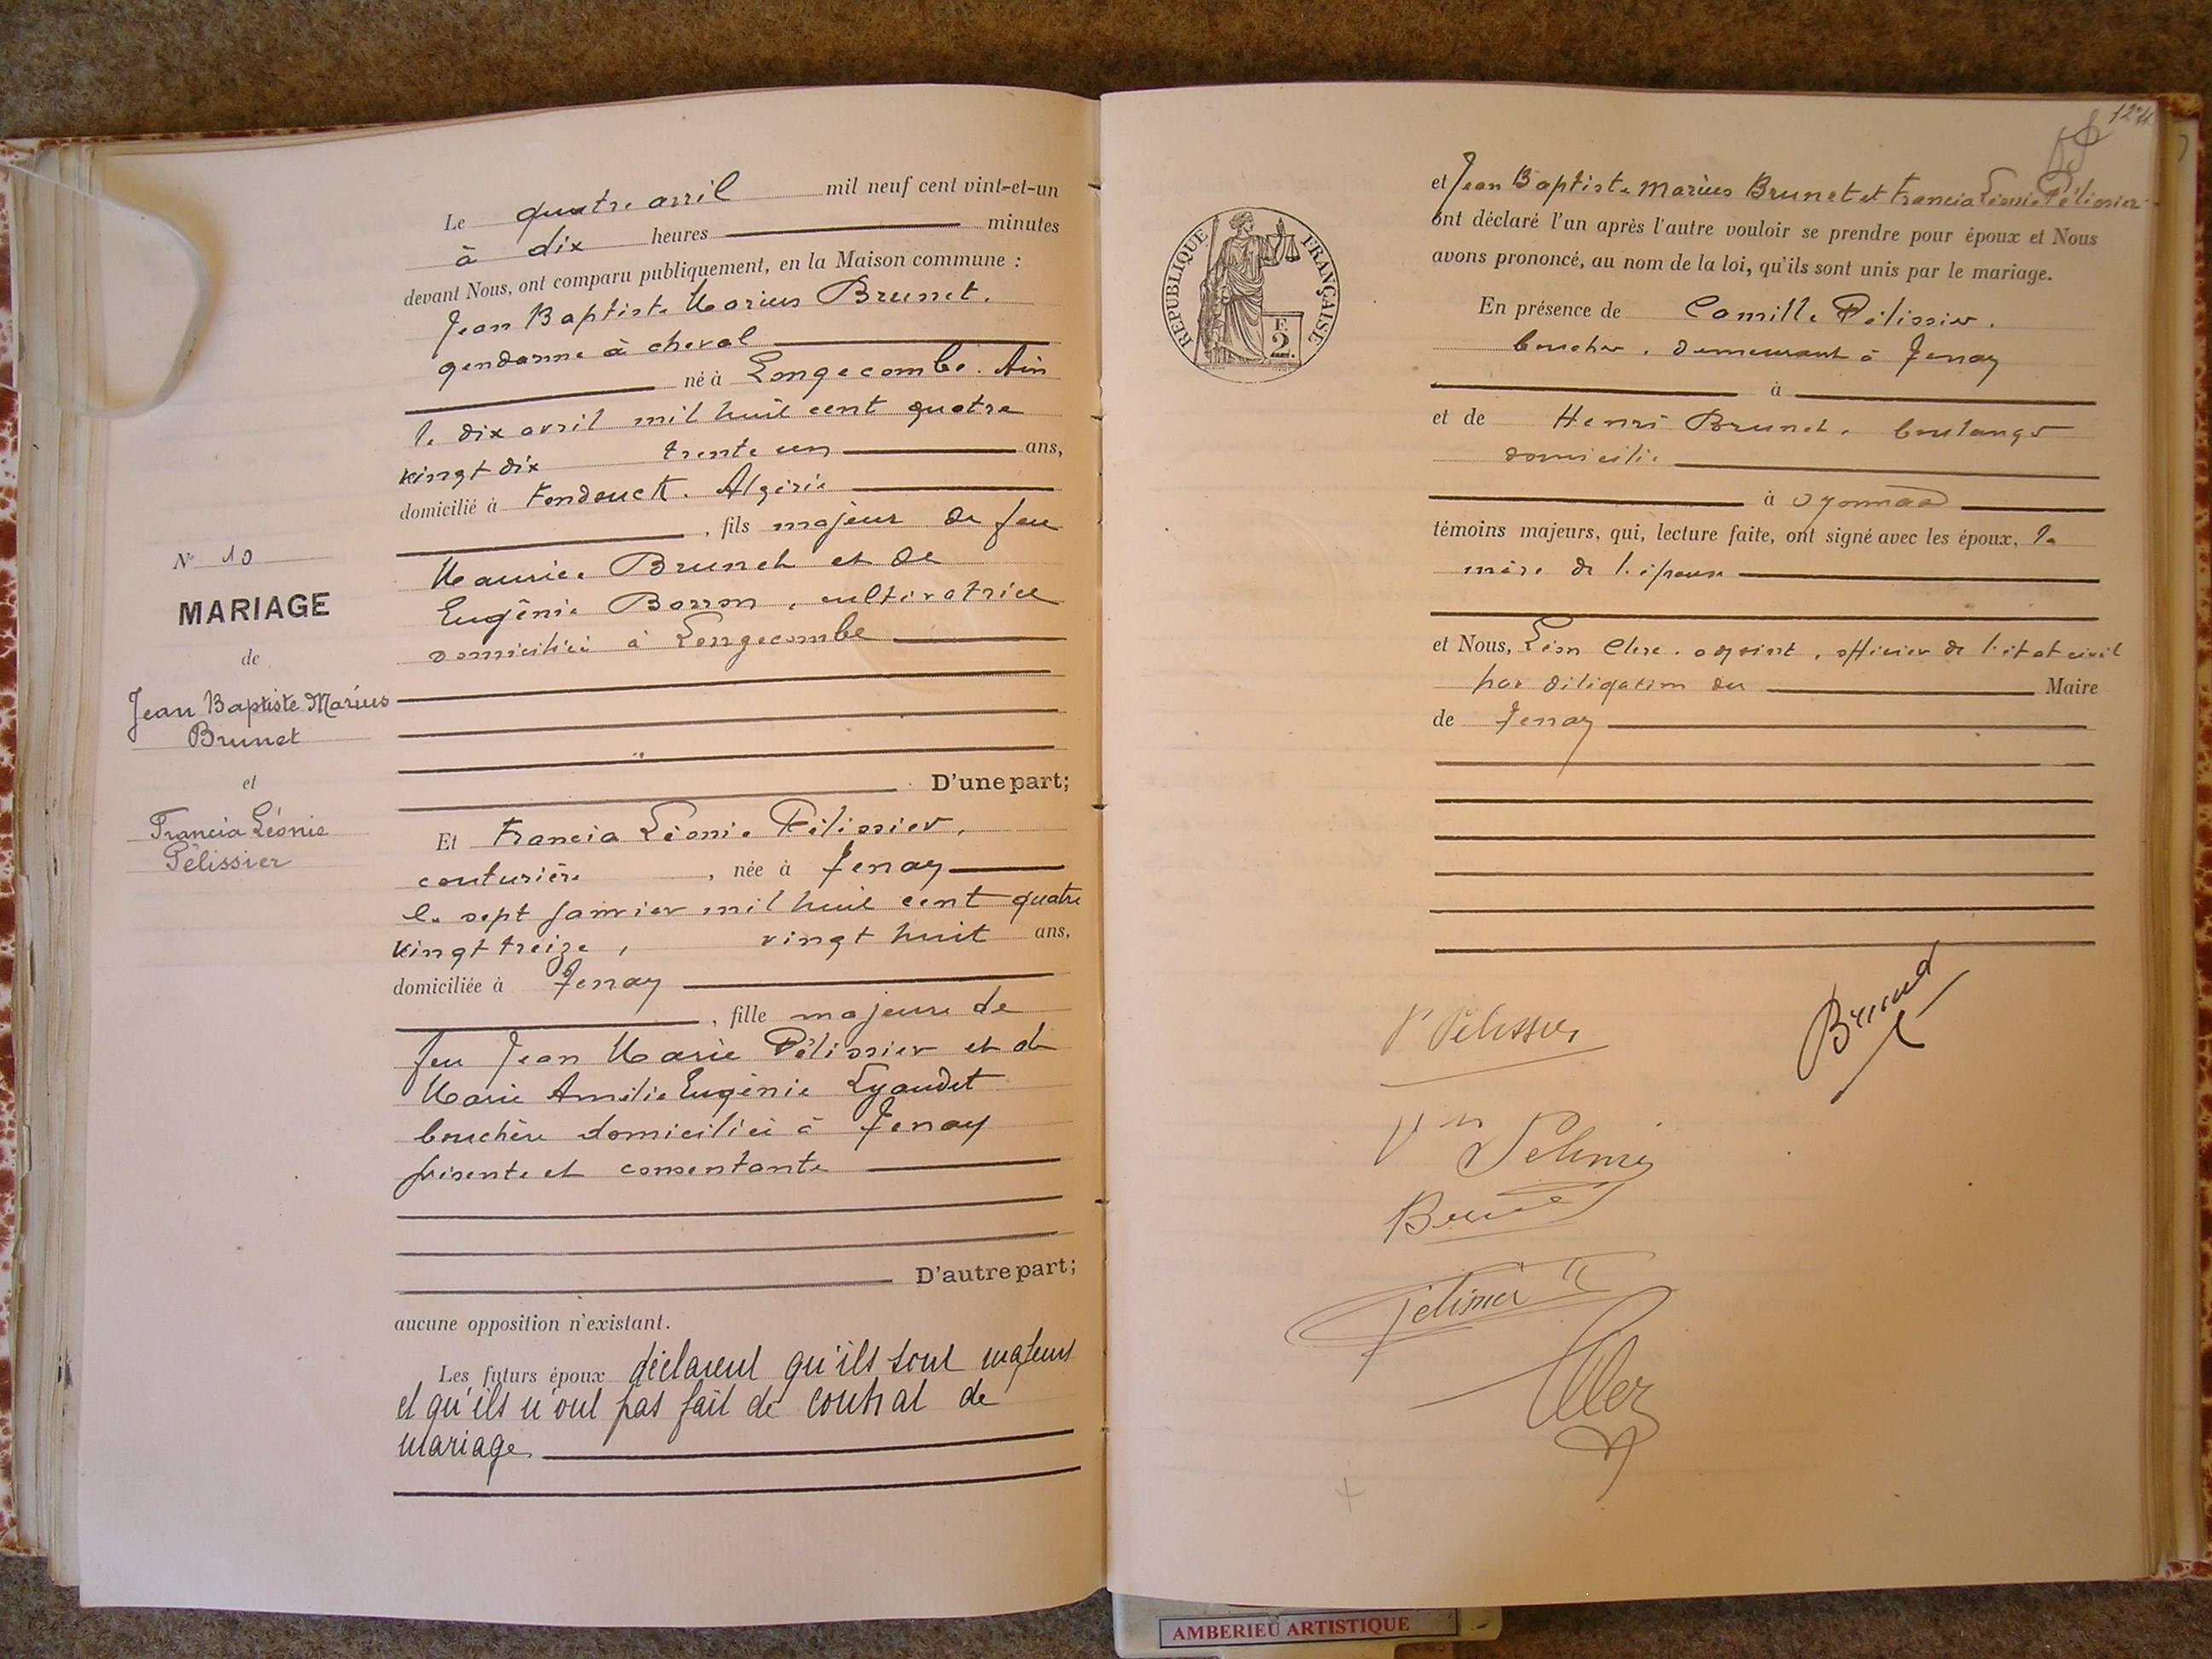 Le quatre avril mil neuf cent vint-et-un
à dix heures minutes
devant Nous, ont comparu publiquement, en la Maison commune :
Jean Baptiste Marius Brunet.
gendarme à cheval
né à Longecombe. Ain
le dix avril mil huit cent quatre
vingt dix trente un ans,
domicilié à Fondouck. Algérie
, fils majeur de feu
Maurice Brunet et de
Eugénie Borron, cultivatrice
domiciliée à Longecombe
D'une part;
N° 10
MARIAGE
de
Jean Baptiste Marius
Brunet
et
Francia Léonie
Pélissier
Et Francia Léonie Pélissier,
couturière, née à Tenay
le sept janvier mil huit cent quatre
vingt treize, vingt huit ans,
domiciliée à Tenay
, fille majeure de
feu Jean Marie Pélissier et de
Marie Amélie Eugénie Lyaudet
bouchère domiciliée à Tenay
présente et consentante
D'autre part;
aucune opposition n'existant.
Les futurs époux déclarent qu'ils sont majeurs
et qu'ils n'ont pas fait de contrat de
mariage
124
et Jean Baptiste Marius Brunet et Francia Léonie Pélissier
ont déclaré l'un après l'autre vouloir se prendre pour époux et Nous
avons prononcé, au nom de la loi, qu'ils sont unis par le mariage.
REPUBLIQUE FRANÇAISE
F.
2
En présence de Camille Pélissier.
boucher. demeurant à Tenay
à
et de Henri Brunet. boulanger
domicilié
à Oyonnax
témoins majeurs, qui, lecture faite, ont signé avec les époux, la
mère de l'épouse
et Nous, Léon Clerc. adjoint, officier de l'état civil
par délégation du Maire
de Tenay
Pélissier
Brunet
Vve Pélissier
Brunet
Pélissier
AMBERIEU ARTISTIQUE